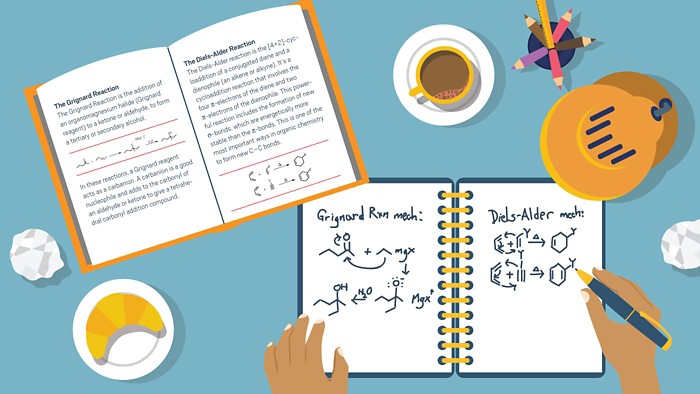 The Grignard Reaction
The Grignard Reaction is the addition of
an organomagnesium halide (Grignard
reagent) to a ketone or aldehyde, to form
a tertiary or secondary alcohol.
In these reactions, a Grignard reagent
acts as a carbanion. A carbanion is a good
nucleophile and adds to the carbonyl of
an aldehyde or ketone to give a tetrahe-
dral carbonyl addition compound.
The Diels-Alder Reaction
The Diels-Alder reaction is the [4+2]-cyc-
loaddition of a conjugated diene and a
dienophile (an alkene or alkyne). It's a
cycloaddition reaction that involves the
four π-electrons of the diene and two
π-electrons of the dienophile. This power-
ful reaction includes the formation of new
σ-bonds, which are energetically more
stable than the π-bonds. This is one of the
most important ways in organic chemistry
to form new C–C bonds.
Grignard Rxn mech:
O
+ mgx
OH H₂O O Mgx⁺
Diels-Alder mech:
+ Y Δ Y
+ Y Δ Y